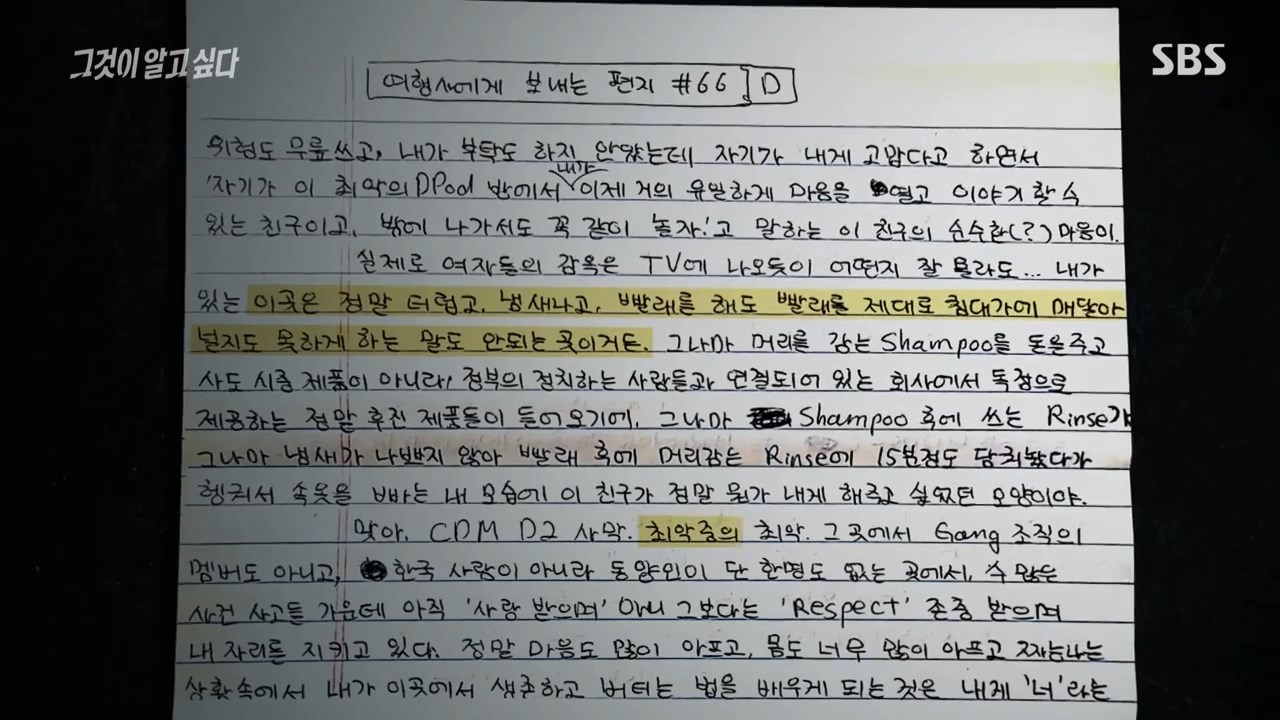 그것이 알고싶다
SBS
여행사에게 보내는 편지 #66 D
위험도 무릎쓰고, 내가 부탁도 하지 안았는데 자기가 내게 고맙다고 하면서
'자기가 이 최악의 DPod 방에서 내가 이제 거의 유일하게 마음을 열고 이야기 할 수
있는 친구이고, 밖에 나가서도 꼭 같이 놀자!'고 말하는 이 친구의 순수한(?) 마음이.
실제로 여자들의 감옥은 TV에 나오듯이 어떤지 잘 몰라도... 내가
있는 이곳은 정말 더럽고, 냄새나고, 빨래를 해도 빨래를 제대로 침대가에 매달아
널지도 못하게 하는 말도 안되는 곳이거든. 그나마 머리를 감는 Shampoo를 돈을 주고
사도 시중 제품이 아니라, 정부의 정치하는 사람들과 연결되어 있는 회사에서 독점으로
제공하는 정말 후진 제품들이 들어오기에, 그나마 Shampoo 후에 쓰는 Rinse가
그나마 냄새가 나쁘지 않아 빨래 후에 머리감는 Rinse에 15분정도 담궈놨다가
헹궈서 속옷을 빠는 내 모습에 이 친구가 정말 뭔가 내게 해주고 싶었던 모양이야.
맞아. CDM D2 사막. 최악중의 최악. 그 곳에서 Gang 조직의
멤버도 아니고, 한국 사람이 아니라 동양인이 단 한명도 없는 곳에서, 수 많은
사건 사고들 가운데 아직 '사랑 받으며' 그보다는 'Respect' 존중 받으며
내 자리를 지키고 있다. 정말 마음도 많이 아프고, 몸도 너무 많이 아프고 짜증나는
상황속에서 내가 이곳에서 생존하고 버티는 법을 배우게 되는 것은 내게 '너'라는